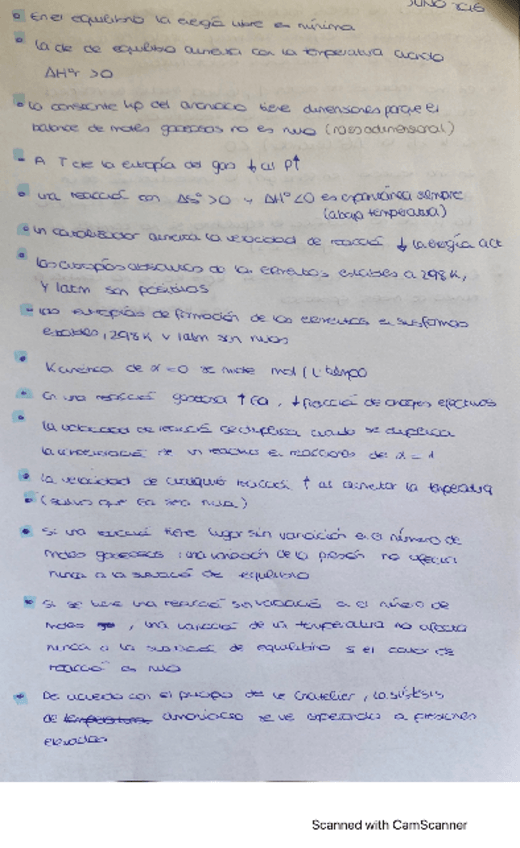 JUNIO 2016
En el equilibrio la energía libre es mínima
La cte de equilibrio aumenta con la temperatura cuando
ΔHº >0
La constante Kp del amoniaco tiene dimensiones porque el
balance de moles gaseosos no es nulo (no es adimensional)
A T cte la entropía del gas ↓ al P↑
una reacción con ΔSº>0 y ΔHº<0 es espontánea siempre
(a baja temperatura)
Un catalizador aumenta la velocidad de reacción ↓ la energía act
Las entropías absolutas de los elementos estables a 298K,
y 1atm son positivas
Las entropías de formación de los elementos en sus formas
estables, 298K y 1atm son nulas
K cinética de α=0 se mide mol/L·tiempo
En una reacción gaseosa ↑Ea, ↓fracción de choques efectivos
La velocidad de reacción se duplica cuando se duplica
la concentración de un reactivo en reacciones de α=1
La velocidad de cualquier reacción ↑ al aumentar la temperatura
(salvo que Ea sea nula)
Si una reacción tiene lugar sin variación en el número de
moles gaseosos: una variación de la presión no afecta
nunca a la situación de equilibrio
Si se tiene una reacción sin variación en el número de
moles, una variación de la temperatura no afecta
nunca a la situación de equilibrio si el calor de
reacción es nulo
De acuerdo con el principio de Le Chatelier, la síntesis
de temperatura amoniaco se ve favorecida a presiones
elevadas
Scanned with CamScanner